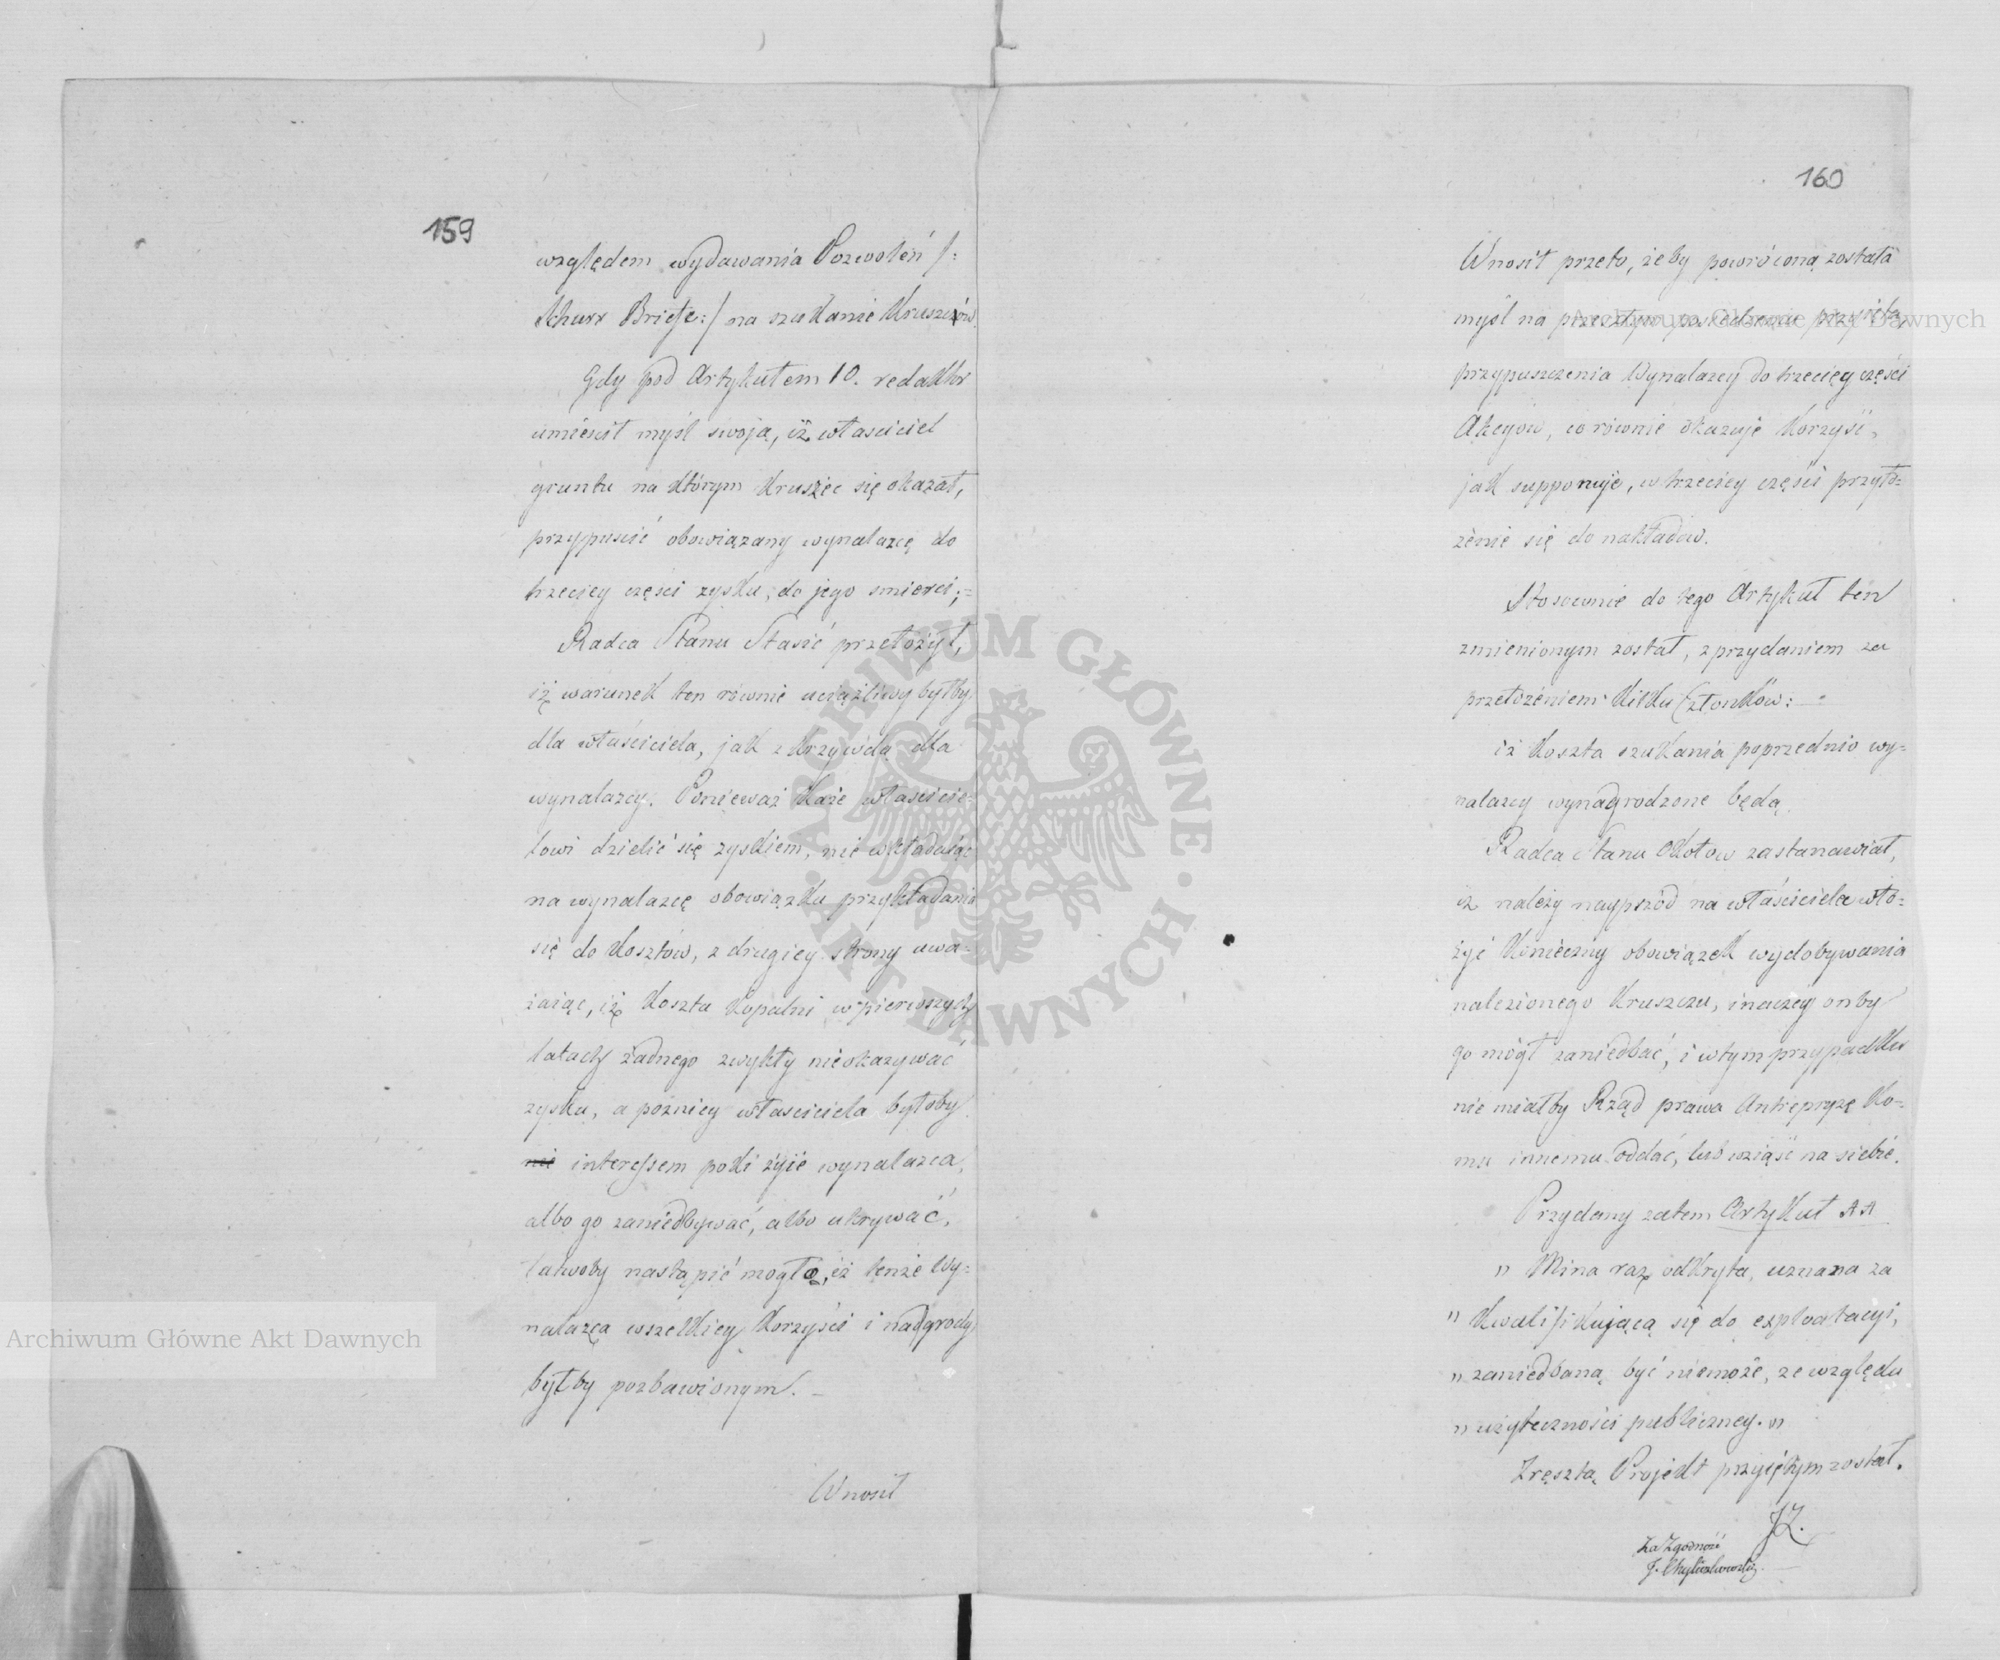 159
względem wydawania Pozwoleń /:
Schurr Briefe:/ na szukanie Kruszców.
Gdy pod Artykułem 10. redaktor
umieścił myśl swoją, iż właściciel
gruntu na którym Kruszec się okazał,
przypuścić obowiązany wynalazcę do
trzeciey części zysku, do jego smierci;=
Radca Stanu Stasic przełożył,
iż warunek ten równie uciążliwy byłby
dla właściciela, jak z Krzywdą dla
wynalazcy. Ponieważ Każe właścicie=
lowi dzielić się zyskiem, nie wkładaiąc
na wynalazcę obowiązku przykładania
się do Kosztów, z drugiey strony uwa=
żaiąc, iż Koszta Kopalni w pierwszych
latach żadnego zwykły nieokazywać
zysku, a pozniey właściciela byłoby
nie interessem poki żyie wynalazca,
albo go zaniedbywać, albo ukrywać,
łatwoby nastąpić mogło, iż tenże Wy=
nalazca wszelkiey Korzyści i nadgrody
byłby pozbawionym. –
Wnosił
160
Wnosił przeto, żeby powróconą została
myśl na przeszłym posiedzeniu przyięta,
przypuszczenia Wynalazcy do trzeciey części
Akcyów, co równie okazuje Korzyść,
jak supponuje, w trzeciey części przyło=
żenie się do nakładów.
Stosownie do tego Artykuł ten
zmienionym został, z przydaniem za
przełożeniem Kilku Członków: –
iż Koszta szukania poprzednio wy=
nalazcy wynagrodzone będą.
Radca Stanu Okołow zastanawiał,
iż należy naypszód na właściciela wło=
żyć Konieczny obowiązek wydobywania
nalezionego Kruszczu, inaczey onby
go mógł zaniedbać, i w tym przypadku
nie miałby Rząd prawa Antrepryzę Ko=
mu innemu oddać, lub wziąść na siebie.
Przydany zatem Artykuł AA
" Mina raz odkryta, uznana za
" Kwalifikującą się do exploatacyi,
" zaniedbaną być niemoże, ze względu
" użyteczności publiczney. "
Zresztą Projekt przyiętym został.
JZ.
Za Zgodność
Archiwum Główne Akt Dawnych
Archiwum Główne Akt Dawnych
ARCHIWUM GŁÓWNE · AKT DAWNYCH ·